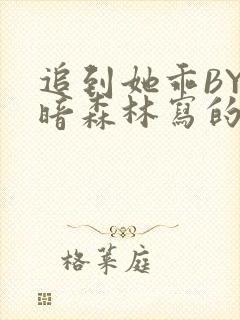 追到她乖BY
暗森林寫的
格菜庭